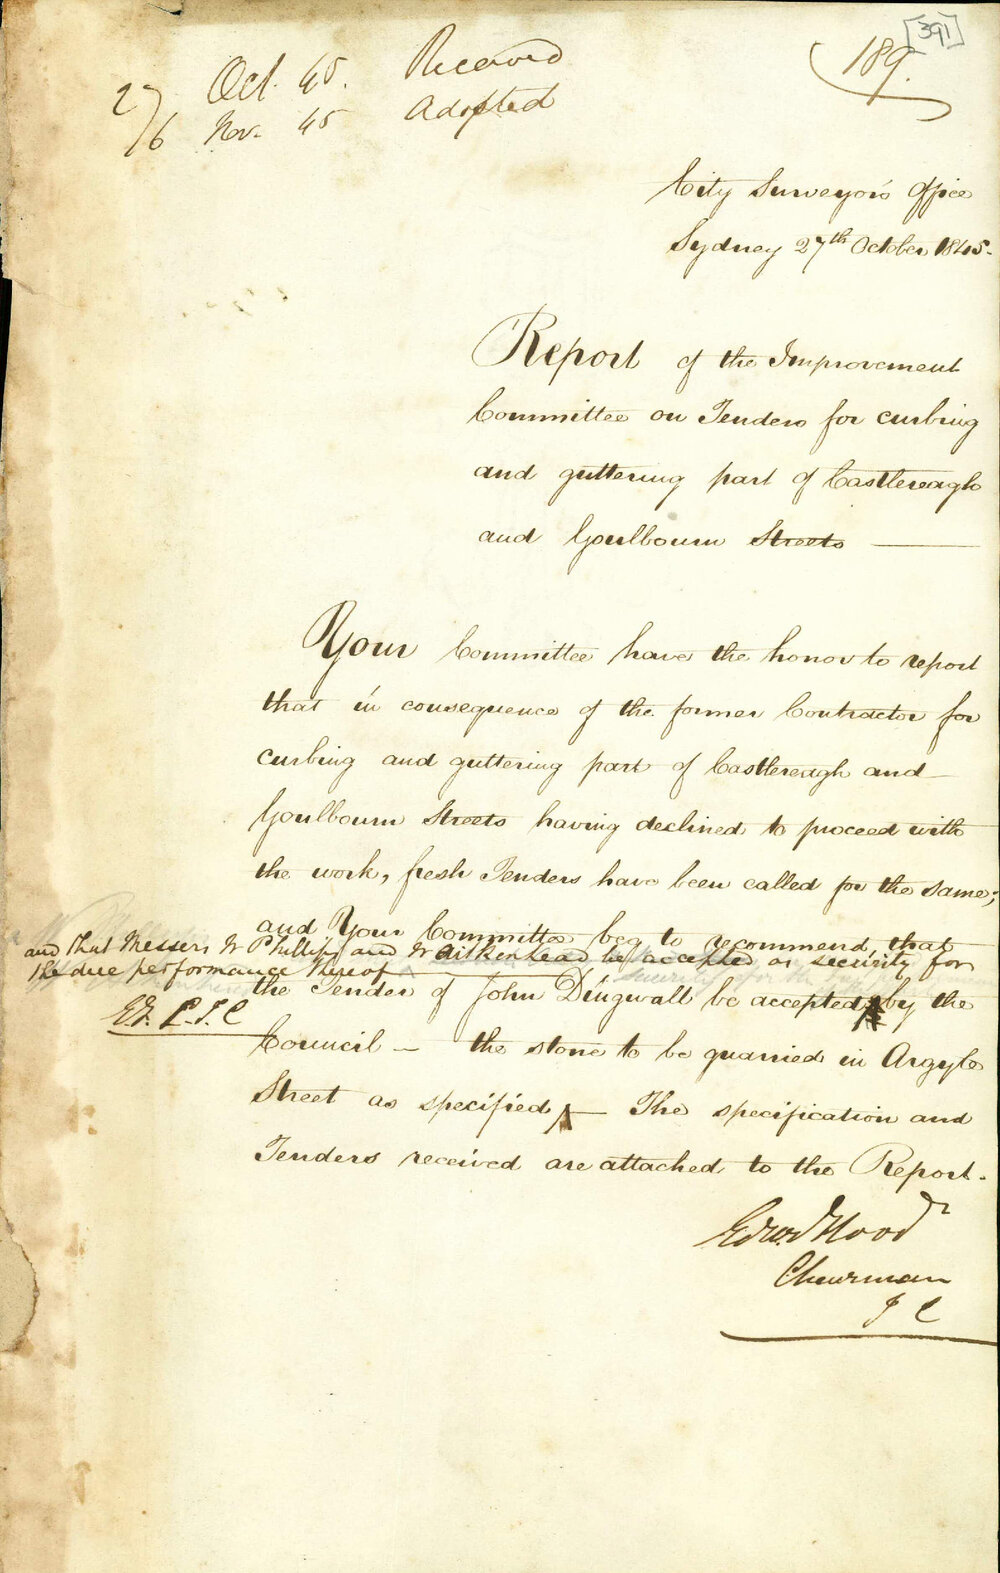 [391]
189.
27 Oct. 45. Received
6 Nov. 45 Adopted
City Surveyor's Office
Sydney 27th October 1845.
Report of the Improvement
Committee on Tenders for curbing
and guttering part of Castlereagh
and Goulbourn Streets
Your Committee have the honor to report
that in consequence of the former Contractor for
curbing and guttering part of Castlereagh and
Goulbourn Streets having declined to proceed with
the work, fresh Tenders have been called for the same;
and Your Committee beg to recommend, that
and that Messers W Phillips and W Aitkenhead be accepted as security for
the due performance thereof
the Tender of John Dingwall be accepted by the
Council — the stone to be quarried in Argyle
Street as specified — The specification and
Tenders received are attached to the Report.
Edwd Flood
Chairman
I C